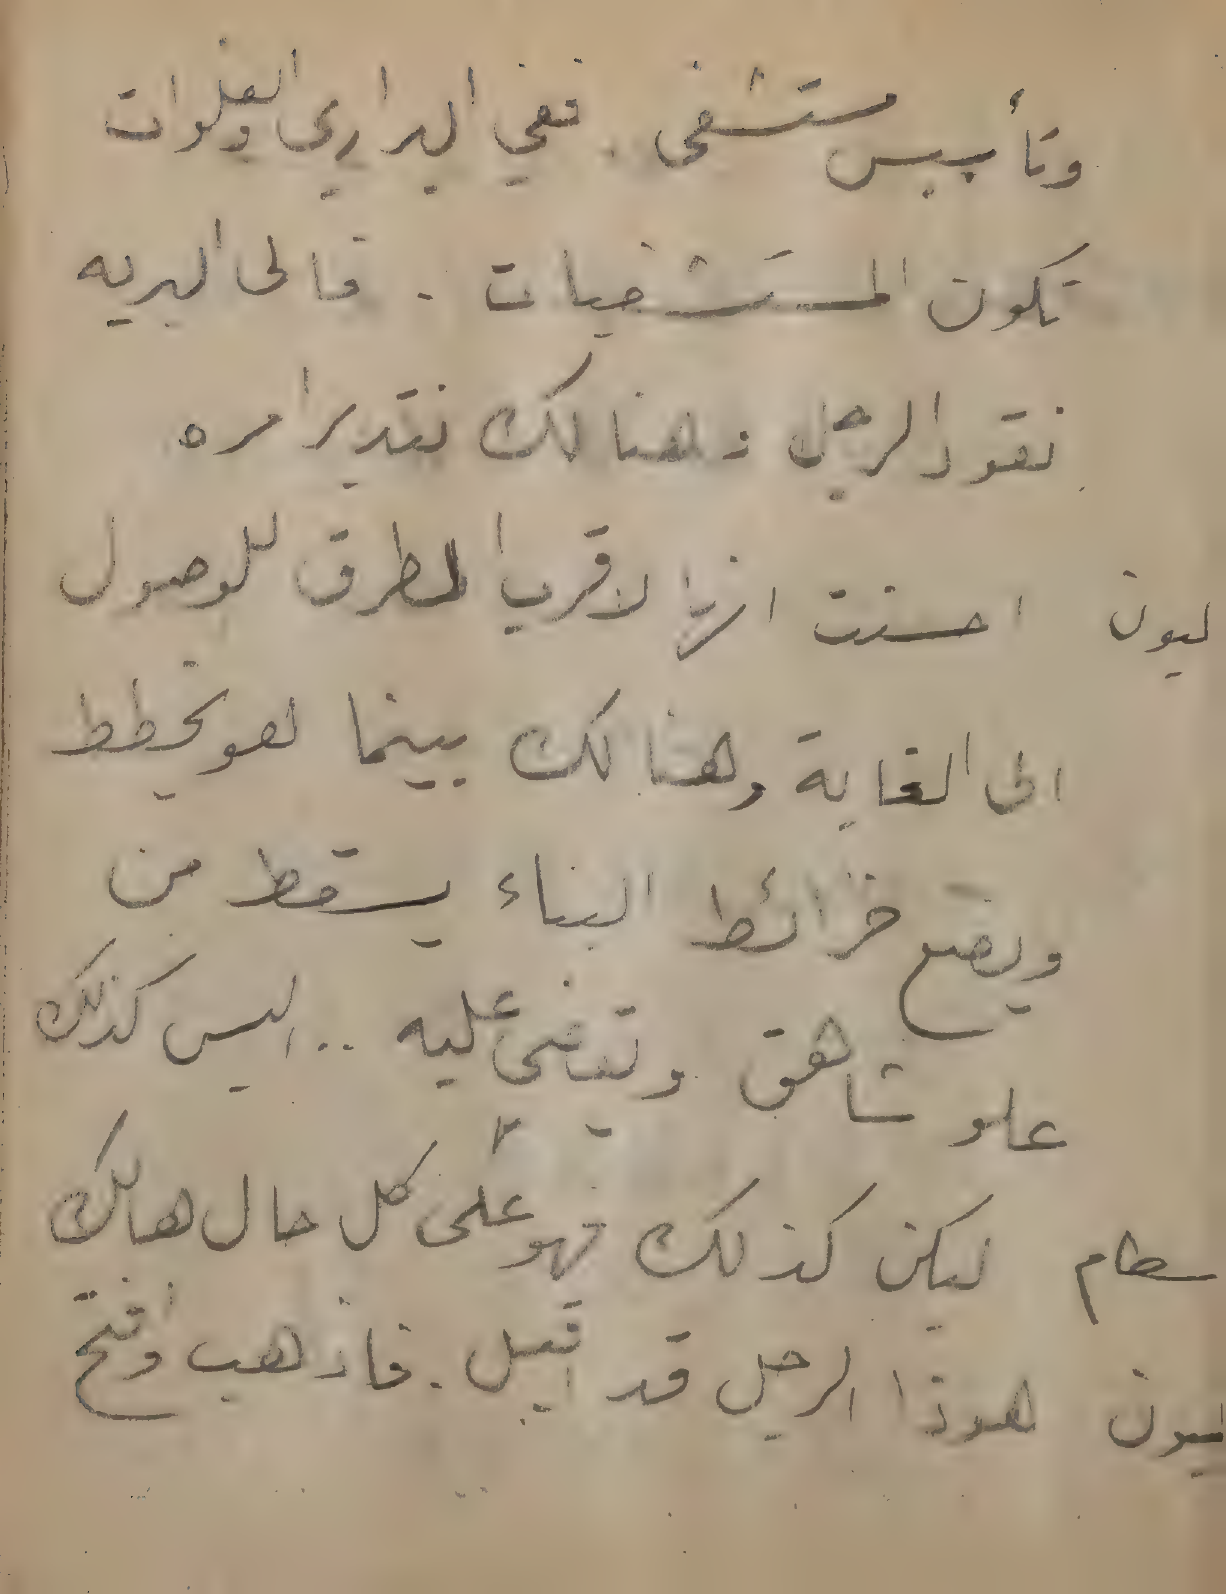 وتأسيس مستشفى . ففي البراري والفلوات
تكون المستشفيات . فالى البريه
نقود الرجل وهنالك نتدبر امره
ليون احسنت انها لاقرب الطرق للوصول
الى الغاية وهنالك بينما هو يخطط
ويضع خرائط البناء يسقط من
علو شاهق ويقضى عليه .. اليس كذلك
سطام ليكن كذلك فهو على كل حال هالك
ليون هوذا الرجل قد اقبل . فاذهب افتح